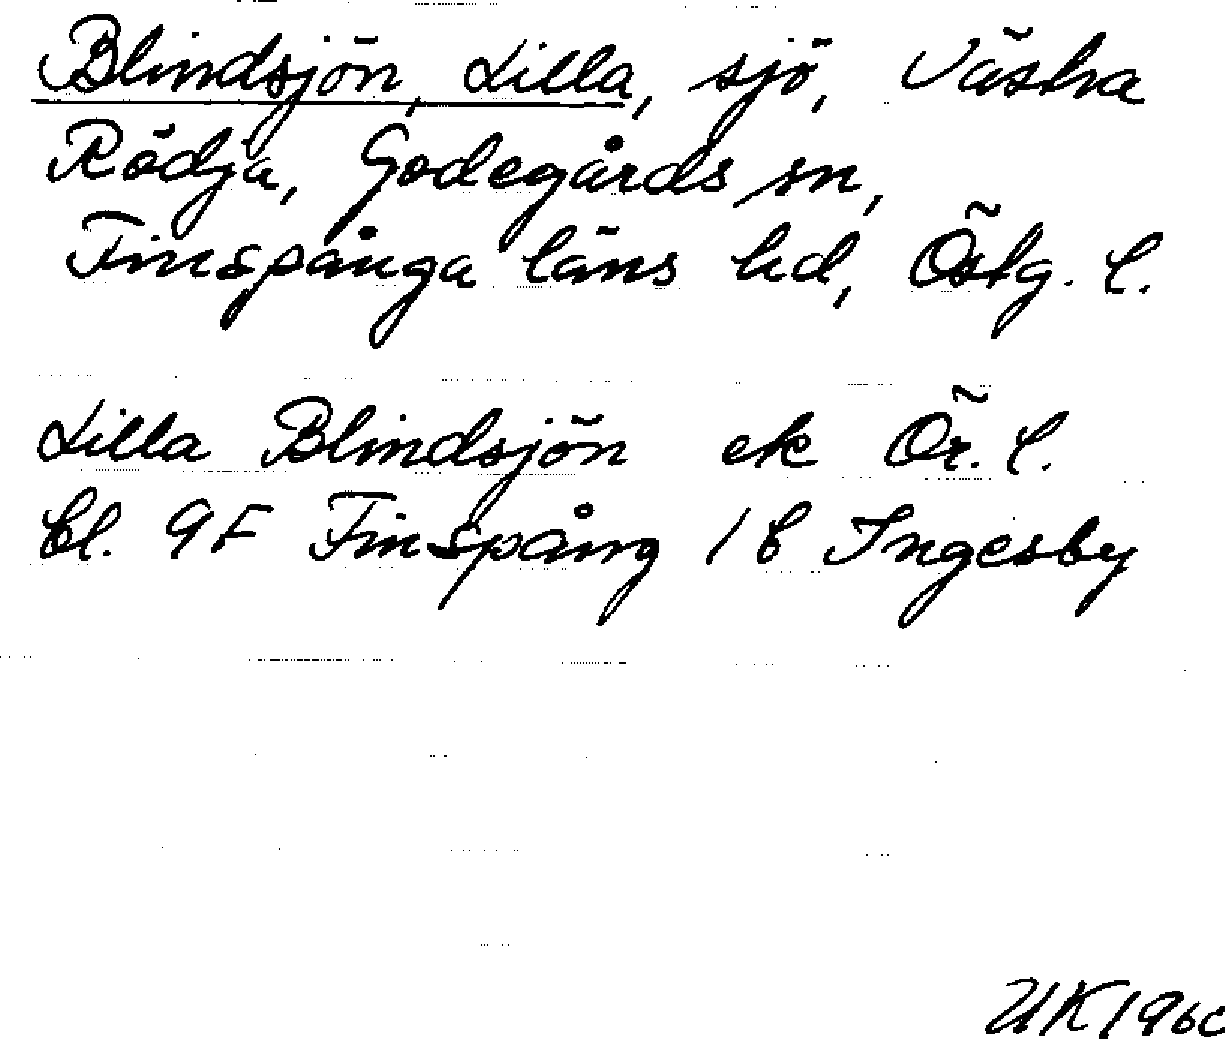 Blindsjön, Lilla, sjö, Västra
Rödja, Godegårds sn,
Finspånga läns hd, Östg. l.
Lilla Blindsjön ek Ör. l.
bl. 9F Finspång 1b Ingesby
UK 1960